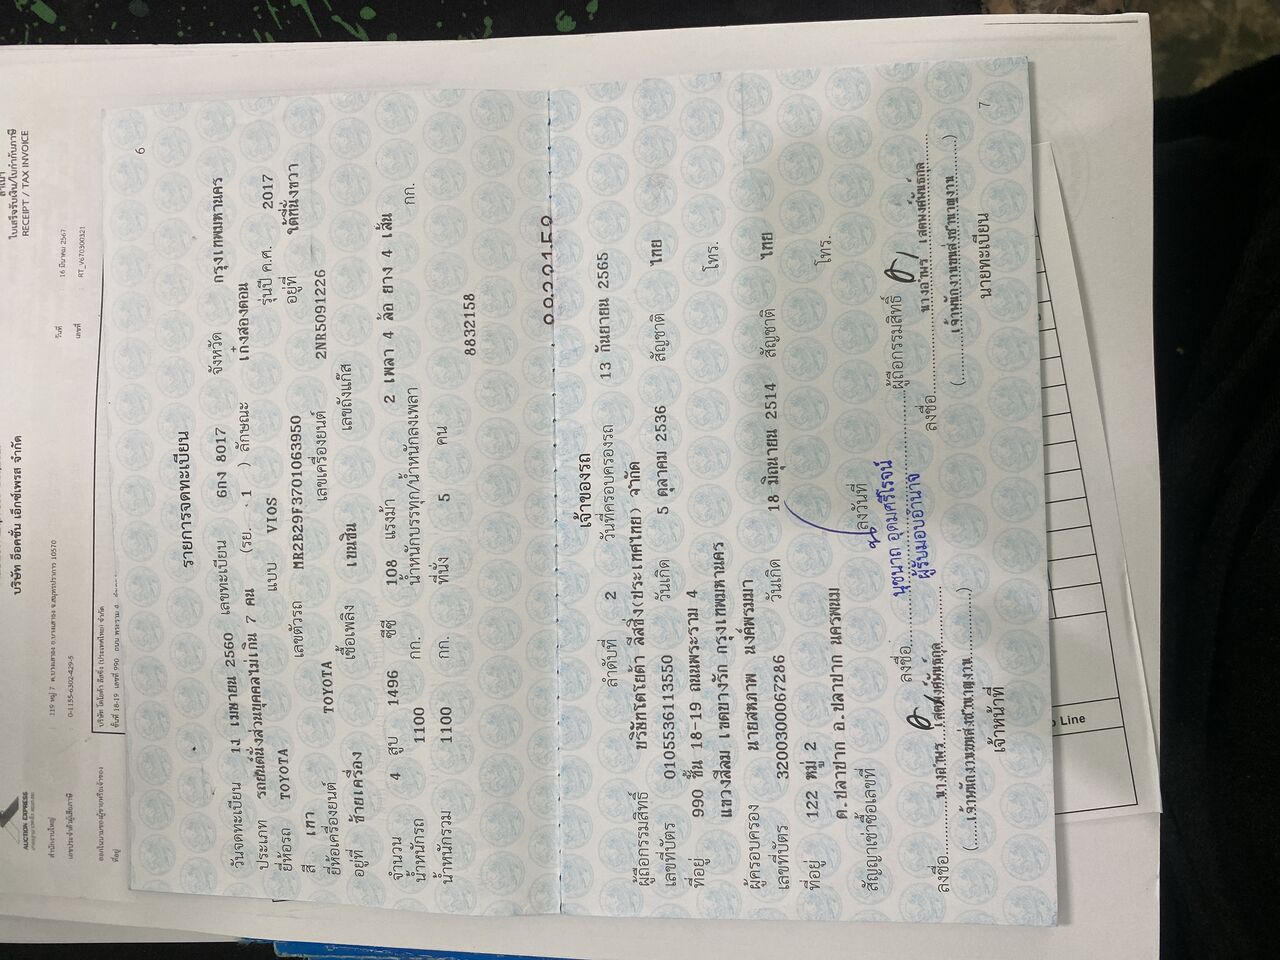 ใบเสร็จรับเงิน/ใบกำกับภาษี
RECEIPT / TAX INVOICE
บริษัท อ๊อคชั่น เอ็กซ์เพรส จำกัด
AUCTION EXPRESS
สำนักงานใหญ่ 119 หมู่ 7 ต.บางเสาธง อ.บางเสาธง จ.สมุทรปราการ 10570
วันที่ : 16 มีนาคม 2567
เลขประจำตัวผู้เสียภาษี 0-1155-6302-429-5
เลขที่ : RT_V670300321
ออกในนามของผู้ขายหรือเจ้าของ บริษัท โตโยต้า ลีสซิ่ง (ประเทศไทย) จำกัด
ที่อยู่ ชั้นที่ 18-19 เลขที่ 990 ถนน พระราม 4
6
รายการจดทะเบียน
วันจดทะเบียน 11 เมษายน 2560 เลขทะเบียน 6กง 8017 จังหวัด กรุงเทพมหานคร
ประเภท รถยนต์นั่งส่วนบุคคลไม่เกิน 7 คน (รย. 1 ) ลักษณะ เก๋งสองตอน
ยี่ห้อรถ TOYOTA แบบ VIOS รุ่นปี ค.ศ. 2017
สี เทา เลขตัวรถ MR2B29F3701063950 อยู่ที่ ใต้ที่นั่งขวา
ยี่ห้อเครื่องยนต์ TOYOTA เลขเครื่องยนต์ 2NR5091226
อยู่ที่ ซ้ายเครื่อง เชื้อเพลิง เบนซิน เลขถังแก๊ส
จำนวน 4 สูบ 1496 ซีซี 108 แรงม้า 2 เพลา 4 ล้อ ยาง 4 เส้น
น้ำหนักรถ 1100 กก. น้ำหนักบรรทุก/น้ำหนักลงเพลา กก.
น้ำหนักรวม 1100 กก. ที่นั่ง 5 คน
8832158
เจ้าของรถ
ลำดับที่ 2 วันที่ครอบครองรถ 13 กันยายน 2565
ผู้ถือกรรมสิทธิ์ บริษัทโตโยต้า ลีสซิ่ง(ประเทศไทย) จำกัด
เลขที่บัตร 0105536113550 วันเกิด 5 ตุลาคม 2536 สัญชาติ ไทย
ที่อยู่ 990 ชั้น 18-19 ถนนพระราม 4 โทร.
แขวงสีลม เขตบางรัก กรุงเทพมหานคร
ผู้ครอบครอง นายสหภาพ นงค์พรมมา
เลขที่บัตร 3200300067286 วันเกิด 18 มิถุนายน 2514 สัญชาติ ไทย
ที่อยู่ 122 หมู่ 2 โทร.
ต.ปลาปาก อ.ปลาปาก นครพนม
สัญญาเช่าซื้อเลขที่ ลงวันที่
ลงชื่อ นุชนาถ อุดมศรีโรจน์ ผู้ถือกรรมสิทธิ์
ผู้รับมอบอำนาจ
ลงชื่อ ลงชื่อ
(เจ้าพนักงานขนส่งชำนาญงาน) (เจ้าพนักงานขนส่งชำนาญงาน)
เจ้าหน้าที่ นายทะเบียน
7
Line